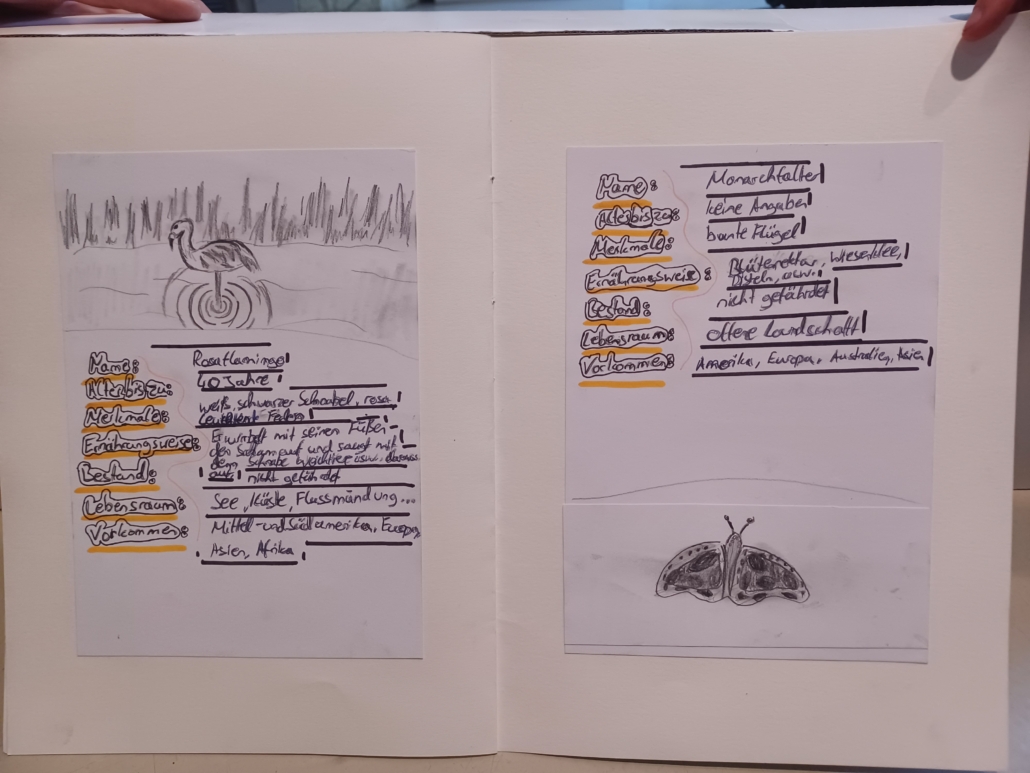 Name: Rosaflamingo
Alter bis zu: 40 Jahre
Merkmale: weiß, schwarzer Schnabel, rosa
Federn
Ernährungsweise: Er wirbelt mit seinen Füßen
den Schlamm auf und saugt mit
dem Schnabel Weichtiere usw. daraus
auf
Bestand: nicht gefährdet
Lebensraum: See, Küste, Flussmündung...
Vorkommen: Mittel- und Südamerika, Europa,
Asien, Afrika
Name: Monarchfalter
Alter bis zu: keine Angaben
Merkmale: bunte Flügel
Ernährungsweise: Blütenektar, Wiesenklee,
Disteln, usw.
Bestand: nicht gefährdet
Lebensraum: offene Landschaft
Vorkommen: Amerika, Europa, Australien, Asien